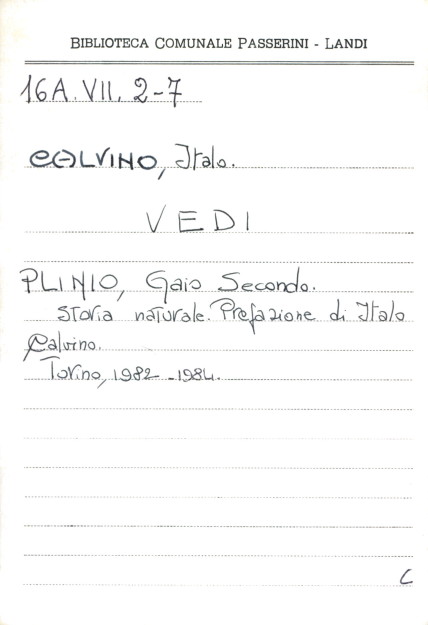 BIBLIOTECA COMUNALE PASSERINI - LANDI
16A. VII. 2-7
CALVINO, Italo.
VEDI
PLINIO, Gaio Secondo.
Storia naturale. Prefazione di Italo
Calvino.
Torino, 1982 - 1984.
C